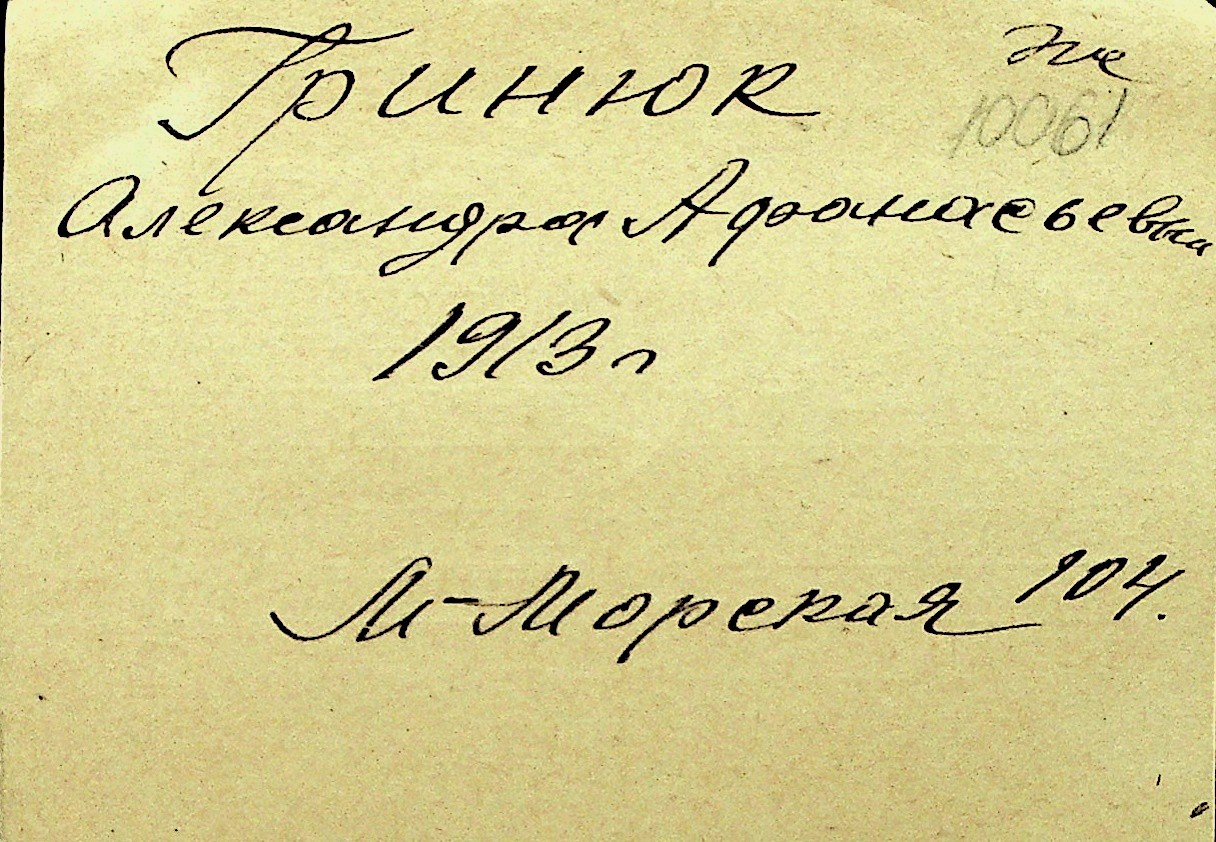 Гринюк
10061
Александра Афанасьевна
1913 г
М-Морская 104.